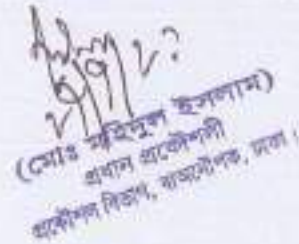 (মোঃ মহিদুল ইসলাম)
প্রধান প্রকৌশলী
প্রকৌশল বিভাগ, বাজনৌপক, ঢাকা।